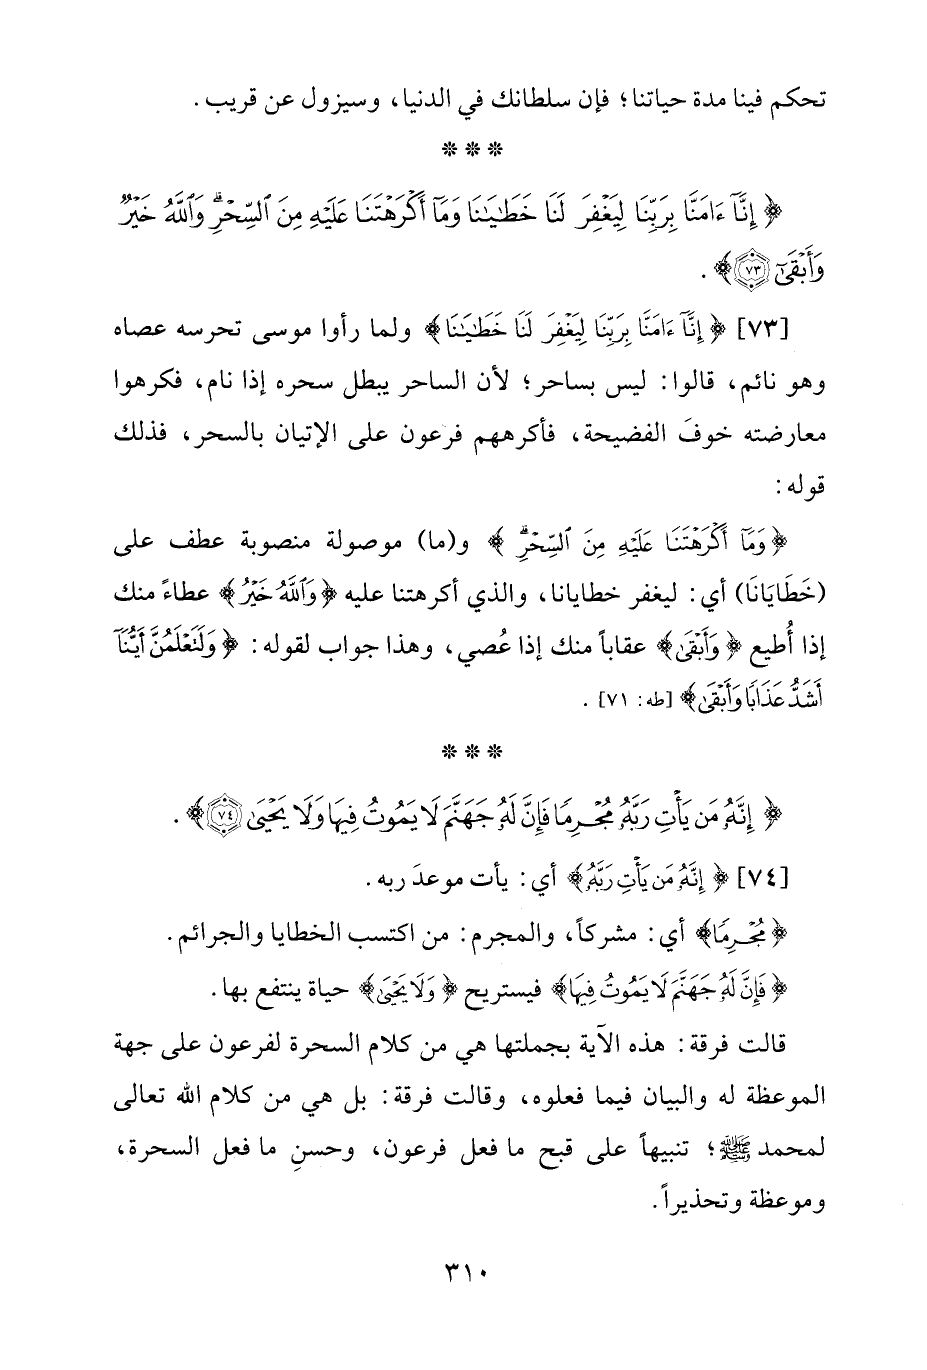 تحكم فينا مدة حياتنا؛ فإن سلطانك في الدنيا، وسيزول عن قريب.
* * *
﴿ إِنَّآ ءَامَنَّا بِرَبِّنَا لِيَغْفِرَ لَنَا خَطَٰيَٰنَا وَمَآ أَكْرَهْتَنَا عَلَيْهِ مِنَ ٱلسِّحْرِ ۗ وَٱللَّهُ خَيْرٌ
وَأَبْقَىٰٓ ٧٣﴾ .
[٧٣] ﴿ إِنَّآ ءَامَنَّا بِرَبِّنَا لِيَغْفِرَ لَنَا خَطَٰيَٰنَا﴾ ولما رأوا موسى تحرسه عصاه
وهو نائم، قالوا: ليس بساحر؛ لأن الساحر يبطل سحره إذا نام، فكرهوا
معارضته خوفَ الفضيحة، فأكرههم فرعون على الإتيان بالسحر، فذلك
قوله:
﴿ وَمَآ أَكْرَهْتَنَا عَلَيْهِ مِنَ ٱلسِّحْرِ ۗ ﴾ و(ما) موصولة منصوبة عطف على
(خَطَايَانَا) أي: ليغفر خطايانا، والذي أكرهتنا عليه ﴿ وَٱللَّهُ خَيْرٌ ﴾ عطاءً منك
إذا أُطيع ﴿ وَأَبْقَىٰ ﴾ عقاباً منك إذا عُصي، وهذا جواب لقوله: ﴿ وَلَتَعْلَمُنَّ أَيُّنَآ
أَشَدُّ عَذَابًا وَأَبْقَىٰ ﴾ [طه: ٧١] .
* * *
﴿ إِنَّهُۥ مَن يَأْتِ رَبَّهُۥ مُجْرِمًا فَإِنَّ لَهُۥ جَهَنَّمَ لَا يَمُوتُ فِيهَا وَلَا يَحْيَىٰ ٧٤﴾ .
[٧٤] ﴿ إِنَّهُۥ مَن يَأْتِ رَبَّهُۥ ﴾ أي: يأت موعدَ ربه.
﴿ مُجْرِمًا ﴾ أي: مشركاً، والمجرم: من اكتسب الخطايا والجرائم.
﴿ فَإِنَّ لَهُۥ جَهَنَّمَ لَا يَمُوتُ فِيهَا ﴾ فيستريح ﴿ وَلَا يَحْيَىٰ ﴾ حياة ينتفع بها.
قالت فرقة: هذه الآية بجملتها هي من كلام السحرة لفرعون على جهة
الموعظة له والبيان فيما فعلوه، وقالت فرقة: بل هي من كلام الله تعالى
لمحمد ﷺ؛ تنبيهاً على قبح ما فعل فرعون، وحسنِ ما فعل السحرة،
وموعظة وتحذيراً.
٣١٠